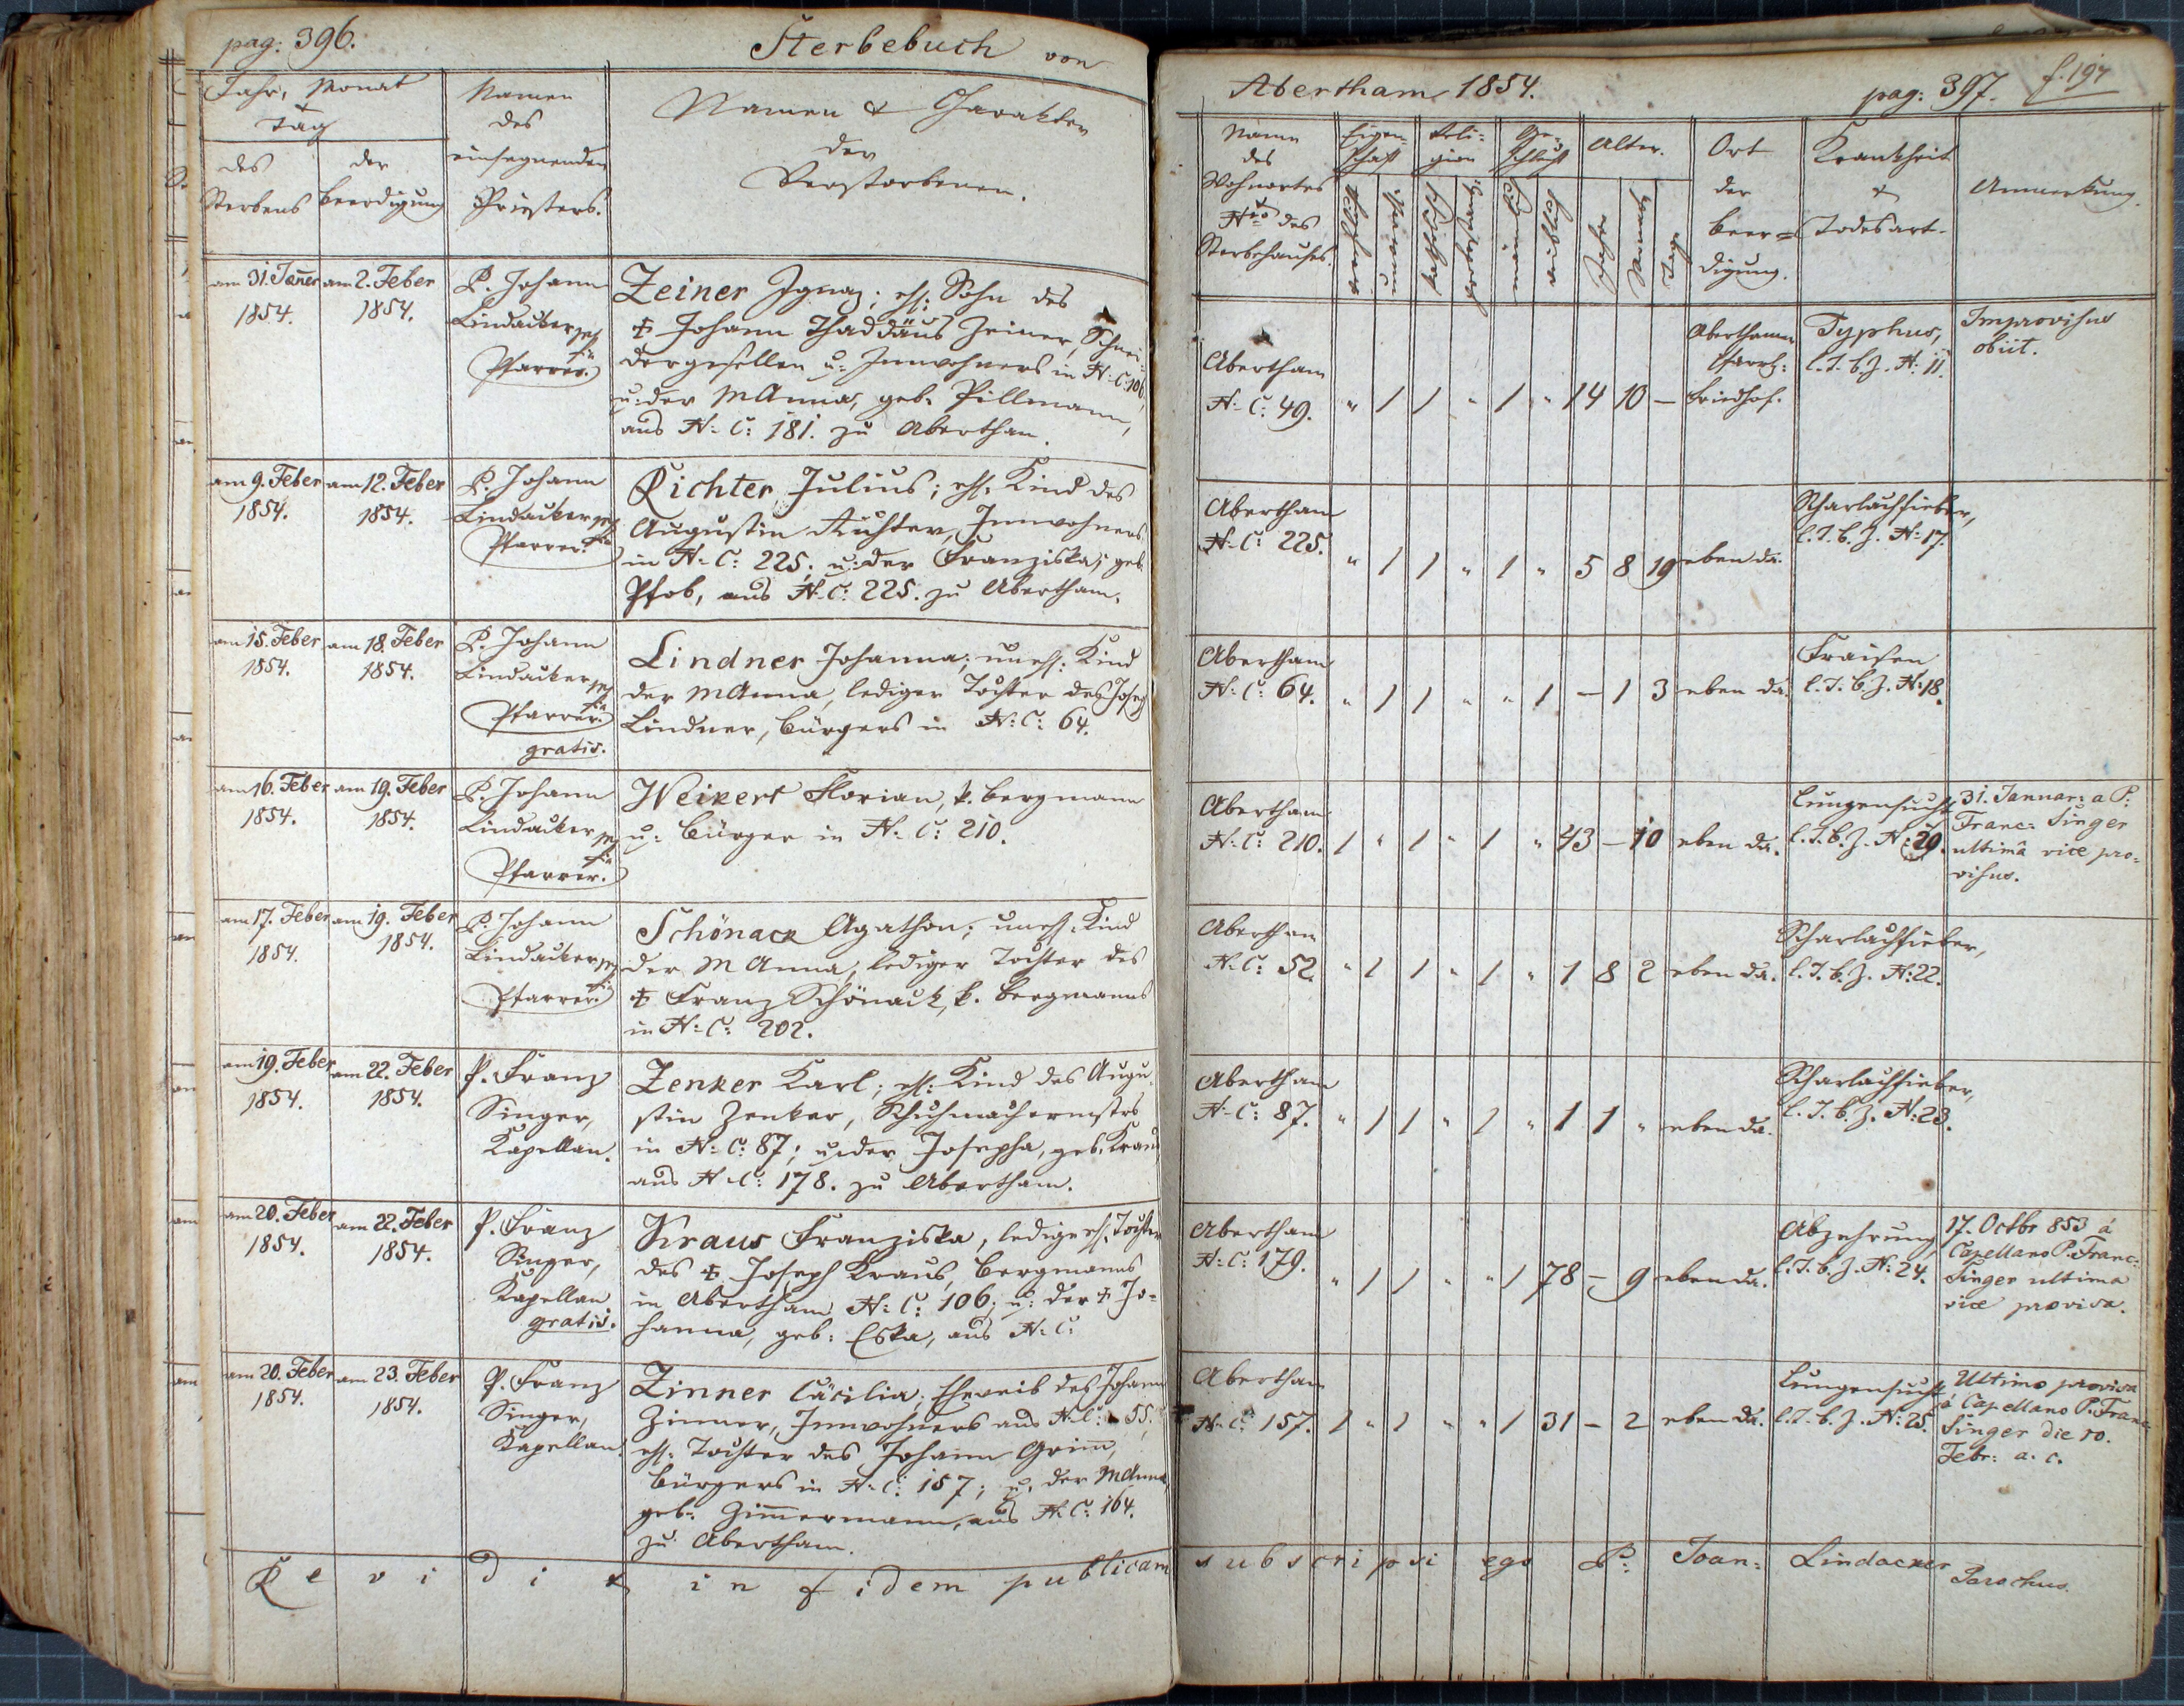 pag: 396.
Sterbebuch von
Jahr, Monat
Tag
des
Sterbens
der
Beerdigung
Namen
des
einsegnenden
Priesters.
Namen & Charakter
der
Verstorbenen.
am 31. Jañer
1854.
am 2. Feber
1854.
P. Johann
Lindacker
Pfarrer.
Zeiner Ignaz; ehl: Sohn des
✝ Johann Thaddäus Zeiner, Schnei-
dergesellen u: Innwohners in N: C: 106,
u: der MAnna, geb: Pillmann,
aus N: C: 181. zu Abertham.
am 9. Feber
1854.
am 12. Feber
1854.
P. Johann
Lindacker
Pfarrer.
Richter Julius; ehl: Kind des
Augustin Richter, Innwohners
in N: C: 225; u: der Franziska, geb.
Pfob, aus N: C: 225. zu Abertham.
am 15. Feber
1854.
am 18. Feber
1854.
P. Johann
Lindacker
Pfarrer.
gratis.
Lindner Johanna; unehl: Kind
der MAnna, lediger Tochter des Joseph
Lindner, Bürgers in N: C: 64.
am 16. Feber
1854.
am 19. Feber
1854.
P. Johann
Lindacker
Pfarrer.
Weikert Florian, k. Bergmann
u: Bürger in N: C: 210.
am 17. Feber
1854.
am 19. Feber
1854.
P. Johann
Lindacker
Pfarrer.
Schönack Agathon; unehl: Kind
der MAnna, lediger Tochter des
✝ Franz Schönack, k. Bergmanns
in N: C: 202.
am 19. Feber
1854.
am 22. Feber
1854.
P. Franz
Singer,
Kapellan.
Zenker Karl; ehl: Kind des Augu-
stin Zenker, Schuhmachermstrs
in N: C: 87; u: der Josepha, geb. Kraus
aus N: C: 178. zu Abertham.
am 20. Feber
1854.
am 22. Feber
1854.
P. Franz
Singer,
Kapellan
gratis.
Kraus Franziska, ledige ehl. Tochter
des ✝ Joseph Kraus, Bergmanns
in Abertham N: C: 106; u: der ✝ Jo-
hanna, geb: Eska, aus N: C:
am 20. Feber
1854.
am 23. Feber
1854.
P. Franz
Singer,
Kapellan.
Zinner Cäcilia; Eheweib des Johann
Zinner, Innwohners aus N: C: 55,
ehl: Tochter des Johann Grim̅,
Bürgers in N: C: 157; u: der MAnna
geb: Zim̅ermann, aus N: C: 164.
zu Abertham.
Revidit in fidem publicam
Abertham 1854.
pag: 397.
f. 197
Name
des
Wohnortes
Nro des
Sterbehauses.
Eigen-
schaft
Reli-
gion
Ge-
schlecht
Alter.
katholisch
männlich
weiblich
Jahre
Monate
Tage
Ort
der
Beer-
digung.
Krankheit
&
Todesart.
Anmerkung.
Abertham
N: C: 49.
" 1 1 " 1 " 14 10 –
Aberthamer
Pfarrk:
Friedhof.
Typhus,
l. T. b. Z. N: 11.
Improvisus
obiit.
Abertham
N: C: 225.
" 1 1 " 1 " 5 8 19 eben da.
Scharlachfieber,
l. T. b. Z. N: 17.
Abertham
N: C: 64.
" 1 1 " " 1 – 1 3 eben da.
Fraisen
l. T. b. Z. N: 18.
Abertham
N: C: 210.
1 " 1 " 1 " 43 – 10 eben da.
Lungensucht
l. T. b. Z. N: 20.
31. Januar: a P.
Franc: Singer
ultimâ vice pro-
visus.
Abertham
N: C: 52.
" 1 1 " 1 " 1 8 2 eben da.
Scharlachfieber,
l. T. b. Z. N: 22.
Abertham
N: C: 87.
" 1 1 " 1 " 1 1 " eben da.
Scharlachfieber,
l. T. b. Z. N: 23.
Abertham
N: C: 179.
" 1 1 " " 1 78 – 9 eben da.
Abzehrung
l. T. b. Z. N: 24.
17. Octbr 853 á
Capellano P. Franc:
Singer ultima
vice provisa.
Abertham
N: C: 157.
1 " 1 " " 1 31 – 2 eben da.
Lungensucht
l. T. b. Z. N: 25.
Ultimo provisa
á Capellano P. Franc:
Singer die 10.
Febr: a. c.
subscripsi ego P: Joan: Lindacker
Parochus.